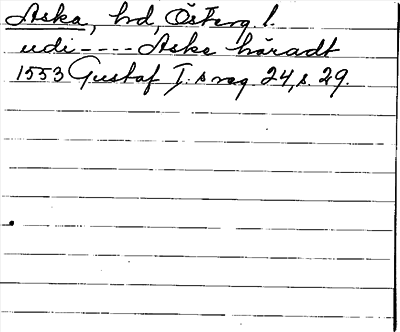 Aska, hd, Österg. l.
udi ---- Aske häradt
1553 Gustaf I:s reg. 24, s. 29.